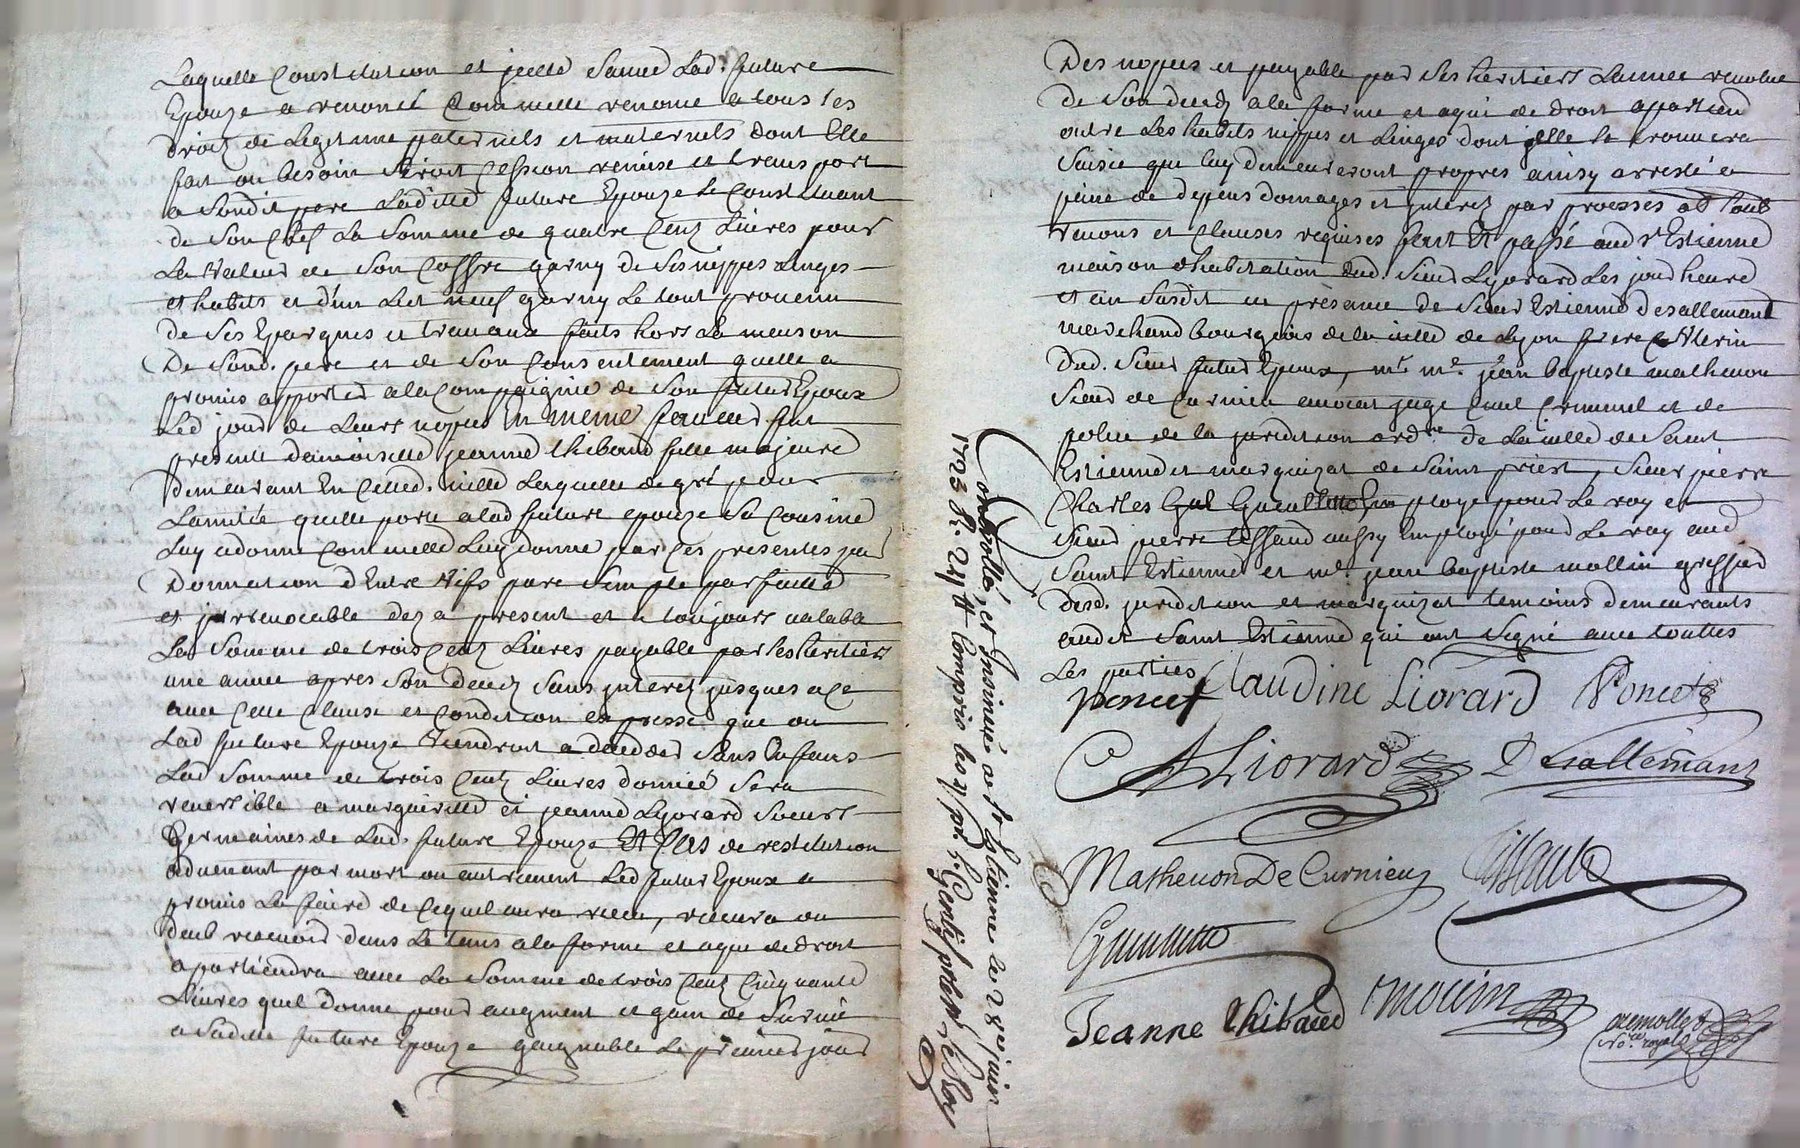 Laquelle Constitution et jcelle Sauve Lad. future
Epouze a renoncé Comme elle renonce a tous ses
droitz de Legitime paternels et maternels dont Elle
fait au besoin Etroit Cession remise et transport
a Sondit pere Laditte future Epouze Se Constituant
de Son Chef La Somme de quatre Centz Livres pour
La Valeur de Son Coffre garny de Ses nippes Linges
et habits et d'un Lict neuf garny Le tout provenu
de Ses Epargnes et travaux faits hors La maison
De Sond. pere et de Son Consentement quelle a
promis apporter a la Compaignie de Son futur Epoux
Led jour de Leurs nopces En meme faveur fut
presente demoiselle jeanne thibaud fille majeure
demeurant En cetted. ville Laquelle de gré pour
Lamitié quelle porte a lad future epouze Sa Cousine
Luy a donné Comme elle Luy donne par Ces presentes par
Donnation d'Entre Vifs pure Simple parfaitte
et jrrevocable dez a present et a toujours valable
La Somme de trois Centz Livres payable par Ses heritiers
une année apres Son deces Sans jnterez jusques a ce
avec Cette Clause et Condition Expresse que ou
Lad future Epouze Viendroit a deceder Sans Enfans
Lad Somme de trois Centz Livres donnée Sera
reversible a margueritte et jeanne Lyorard Sœurs
Germaines de Lad. future Epouze Et Cas de restitution
advenant par mort ou autrement Led futur Epoux a
promis La faire de Cequil aura receu, recevra ou
deub recevoir dans Le tems a la forme et a qui de droit
apartiendra avec La Somme de trois Centz Cinquante
Livres quil donne pour augment et gain de Survie
a Sadite future Epouze gaignable Le premier jour
Des nopces et payable par Ses heritiers Lannée revolue
de Son deces a la forme et a qui de droit apartiend
outre Les habits nippes et Linges dont jcelle Se trouvera
Saisie que luy demeureront propres ainsy arresté a
peine de depens domages et jnterez par promesses
renons et Clauses requises fait Et passé aud St Estienne
maison d'habitation dud. Sieur Lyorard Les jour heure
et an Susdit en presence de Sieur Estienne desallemant
marchand bourgeois de la ville de Lyon frere Uterin
Dud. Sieur futur Epoux, mre me. jean baptiste mathevon
Sieur de Curnieu avocat juge Civil Criminel et de
police de la juridition ordre. de La ville de Saint
Estienne et marquizat de Saint priest, Sieur pierre
Charles Employé pour Le roy et
Sieur pierre aussy Employé pour Le roy aud
Saint Estienne et me. jean baptiste mollin greffier
desd. juridition et marquizat temoins demeurants
audit Saint Estienne qui ont Signé avec touttes
Les parties
poncet Claudine Liorard Poncet
Liorard Desallemant
Mathevon De Curnieu
Jeanne thibaud mollin
No.re royal
Controllé, et Insinué a St Estienne le 28e janvr
1723 R. 24# Compris les 4 s. pr. #